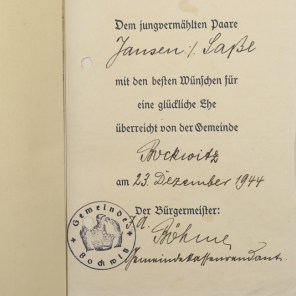 Dem jungvermählten Paare
Jansen / Saße
mit den besten Wünschen für
eine glückliche Ehe
überreicht von der Gemeinde
Bockwitz
am 23. Dezember 1944
Der Bürgermeister:
J.A.
Böhme
Gemeindekassenrendant.
Gemeinde
Bockwitz